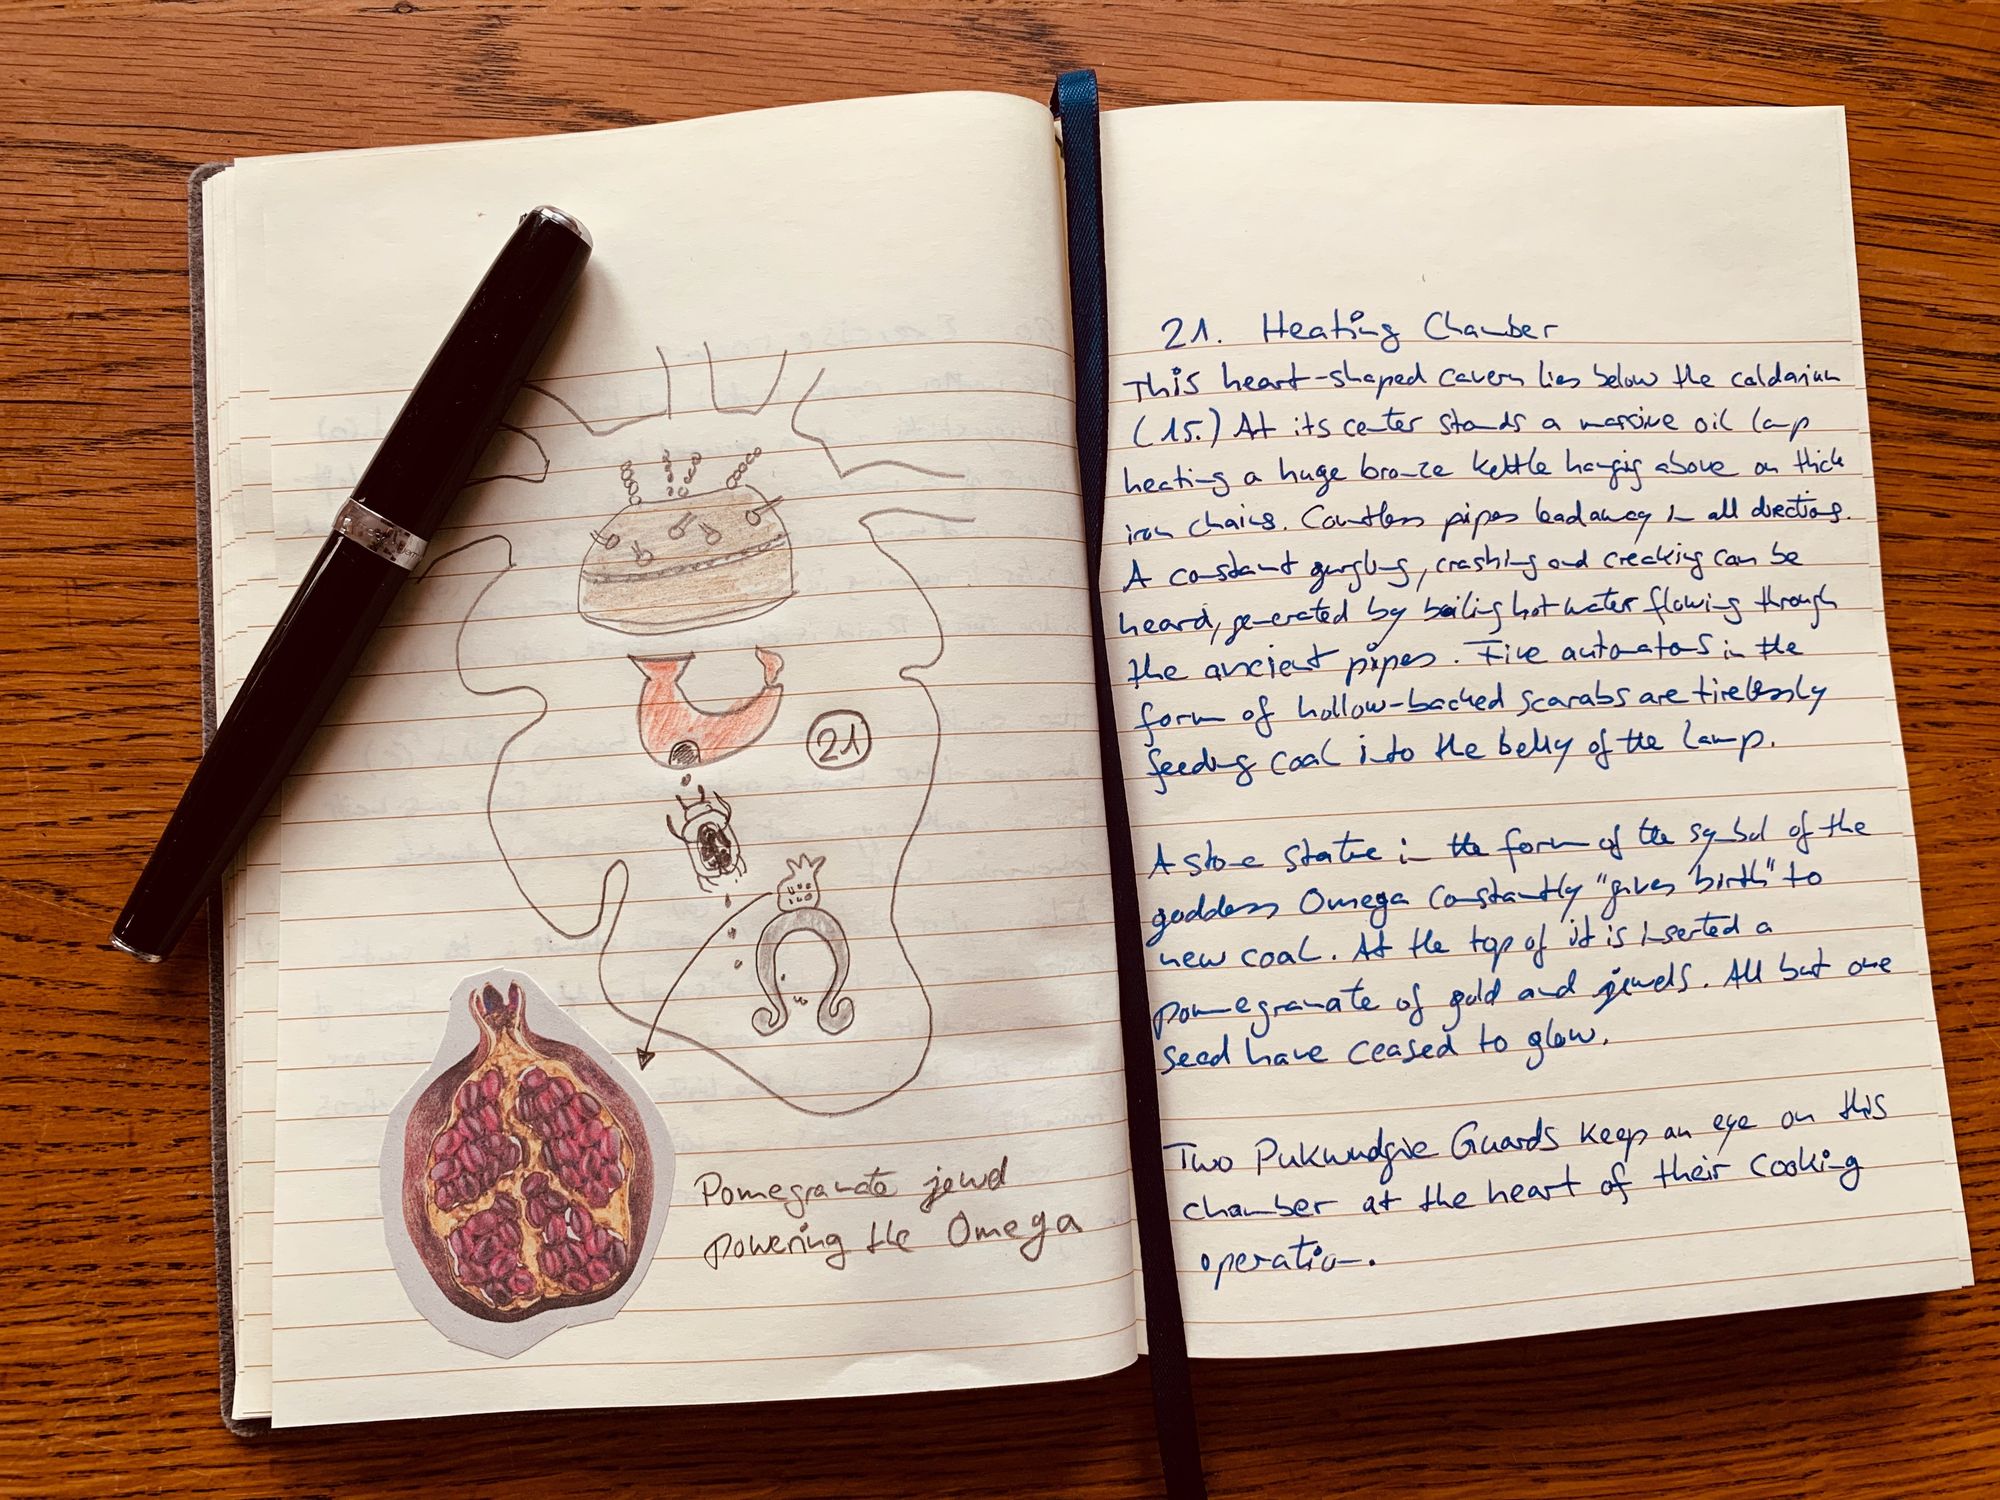 21
Pomegranate jewel
powering the Omega
21. Heating Chamber
This heart-shaped cavern lies below the caldarium
(15.) At its center stands a massive oil lamp
heating a huge bronze kettle hanging above on thick
iron chains. Countless pipes lead away in all directions.
A constant gurgling, crashing and creaking can be
heard, generated by boiling hot water flowing through
the ancient pipes. Five automatons in the
form of hollow-backed scarabs are tirelessly
feeding coal into the belly of the lamp.
A stone statue in the form of the symbol of the
goddess Omega constantly "gives birth" to
new coal. At the top of it is inserted a
pomegranate of gold and jewels. All but one
seed have ceased to glow.
Two Pukwudgie Guards keep an eye on this
chamber at the heart of their cooking
operation.